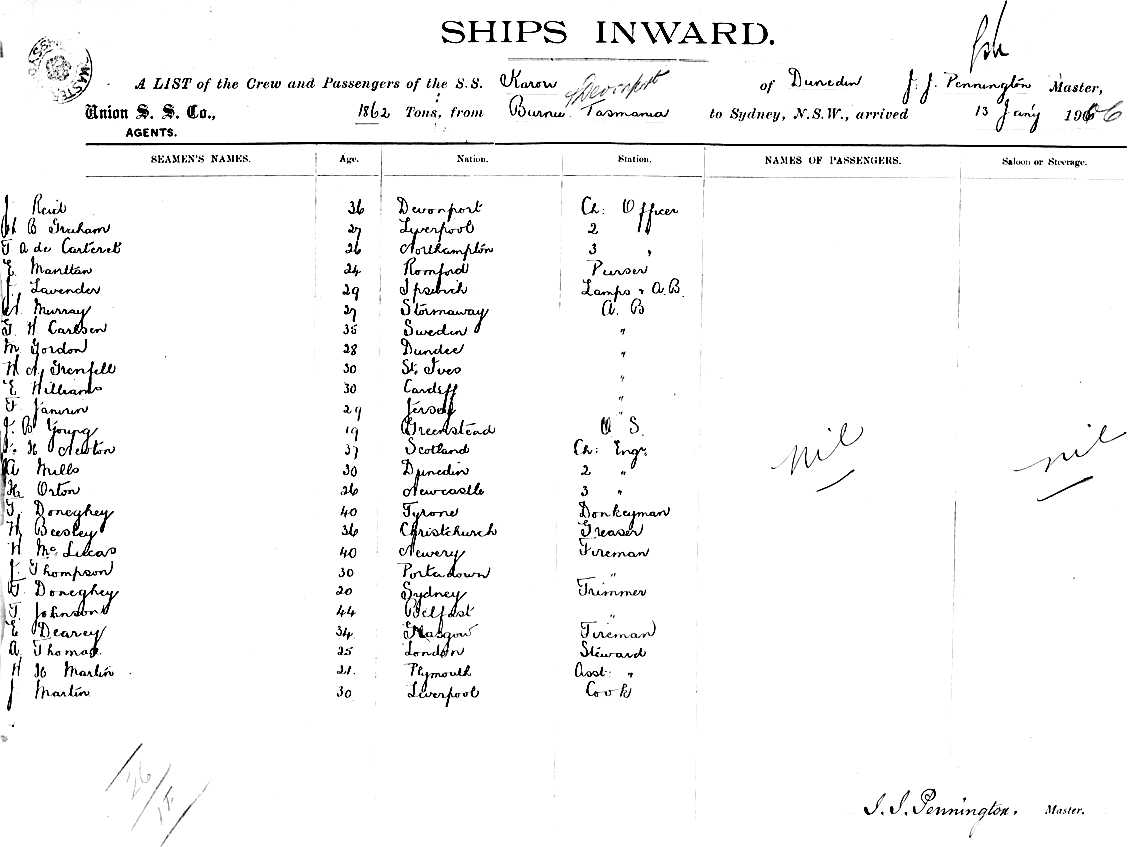 SHIPS INWARD.
A LIST of the Crew and Passengers of the S.S. Karori & Devonport of Dunedin J. J. Pennington Master,
Union S. S. Co., 1862 Tons, from Burnie Tasmania to Sydney, N.S.W., arrived 13 Jany 1906
AGENTS.
SEAMEN'S NAMES. Age. Nation. Station. NAMES OF PASSENGERS. Saloon or Steerage.
J Reid 36 Devonport Ch: Officer
B Graham 27 Liverpool 2 "
T A de Carteret 26 Northampton 3 "
E 24 Romford Purser
J Lavender 29 Ipswich Lamps & A.B.
Murray 27 Stornaway A. B
G H Carlsen 35 Sweden "
M Gordon 28 Dundee "
H Grenfell 30 St. Ives "
E Williams 30 Cardiff "
F 29 Jersey "
J. B Young 19 Greenstead O S.
H Newton 37 Scotland Ch: Engr. nil nil
A Mills 30 Dunedin 2 "
H Orton 26 Newcastle 3 "
T. Doneghey 40 Tyrone Donkeyman
H Beesley 36 Christchurch Greaser
H McLucas 40 Newery Fireman
J. Thompson 30 Portadown "
T. Doneghey 20 Sydney Trimmer
T. Johnson 44 Belfast "
E Dearey 34 Glasgow Fireman
A Thomas 25 London Steward
H H Martin 21 Plymouth Asst: "
J Martin 30 Liverpool Cook
26/
J. J. Pennington. Master.